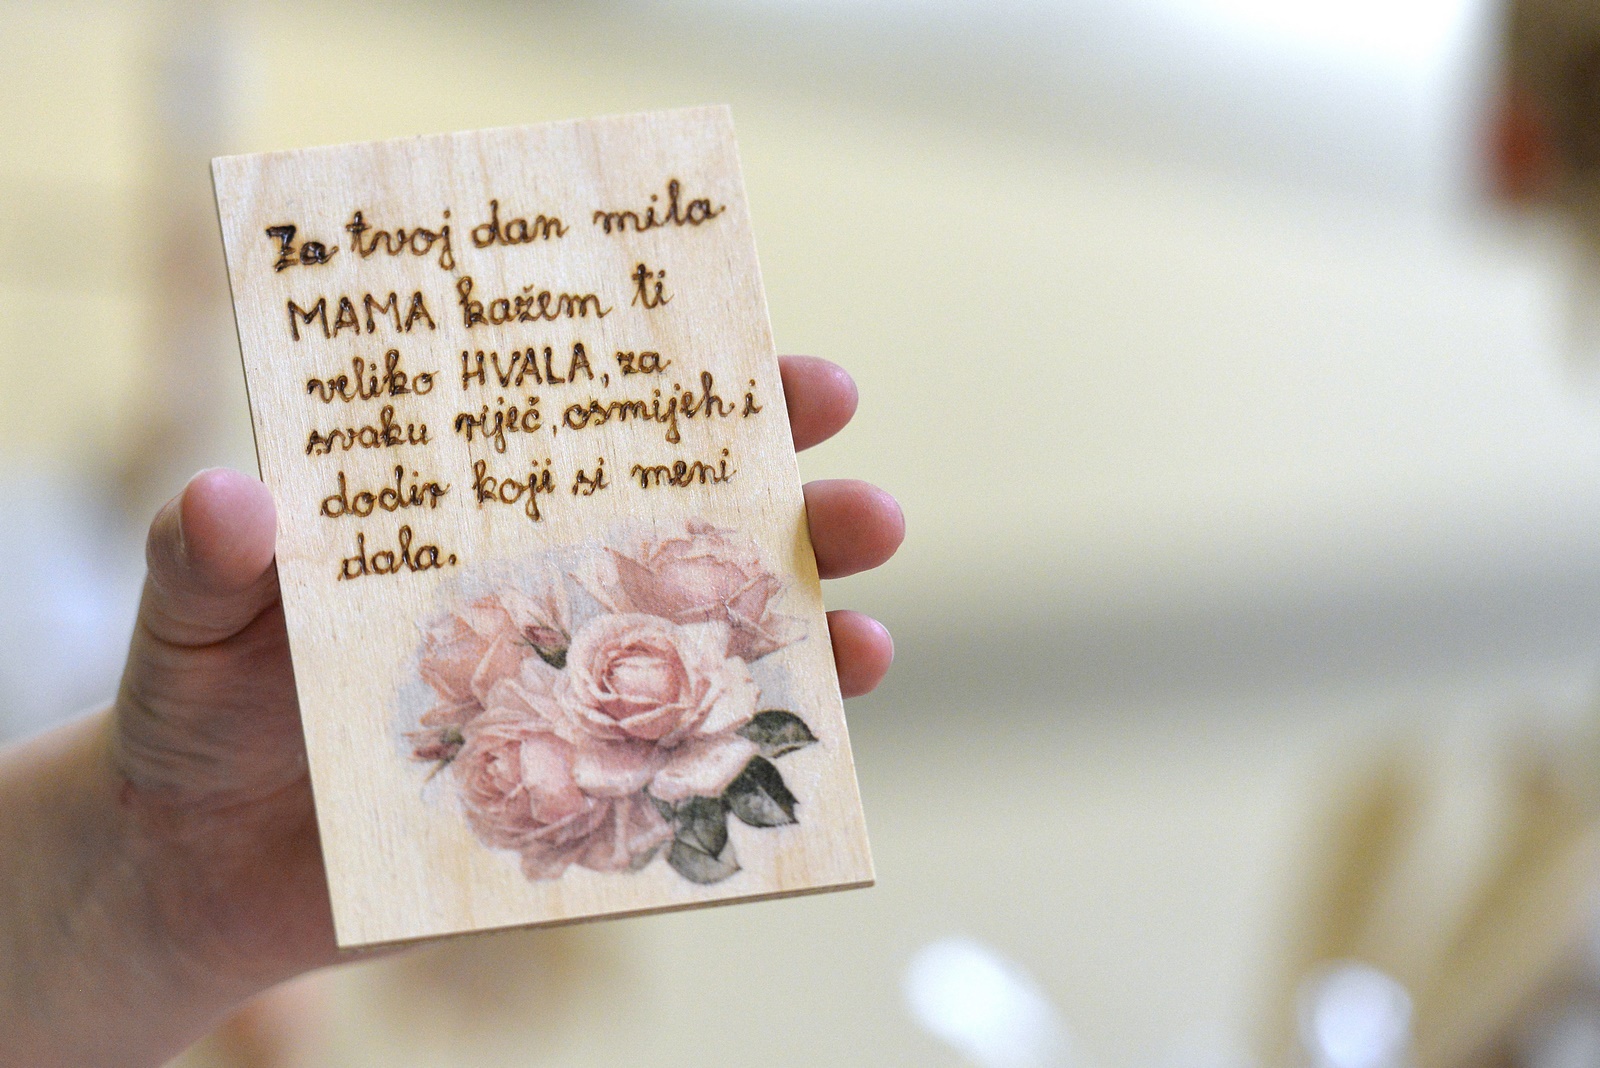 Za tvoj dan mila
MAMA kažem ti
veliko HVALA, za
svaku riječ, osmijeh i
dodir koji si meni
dala.